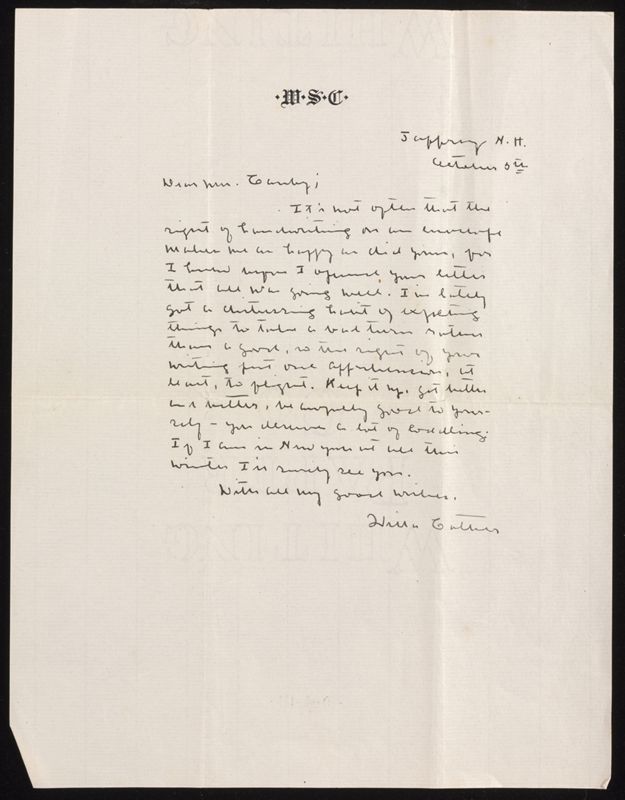 ·W·S·C·
Jaffrey N. H.
October 5th
Dear Mr. Canby;
It's not often that the
sight of handwriting on an envelope
makes me as happy as did yours, for
I knew before I opened your letter
that all was going well. I've lately
got a distressing habit of expecting
things to take a bad turn rather
than a good, so the sight of your
writing put one apprehension, at
least, to flight. Keep it up, get better
and better, be awfully good to your-
self - you deserve a lot of coddling.
If I am in New York at all this
winter I'll surely see you.
With all my good wishes,
Willa Cather
WHITING
WHITING